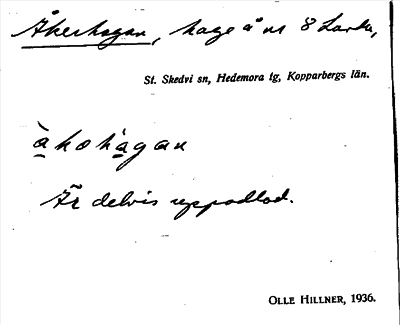 Åkerhagan, hage å nr 8 Larbo,
St. Skedvi sn, Hedemora tg, Kopparbergs län.
àkəhàgan
Är delvis uppodlad.
OLLE HILLNER, 1936.